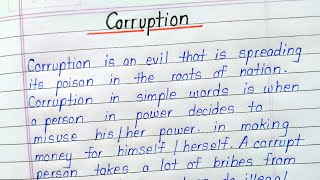 Corruption
Corruption is an evil that is spreading
its poison in the roots of nation.
Corruption in simple words is when
a person in power decides to
misuse his/her power. in making
money for himself/herself. A corrupt
person takes a lot of bribes from
illegal